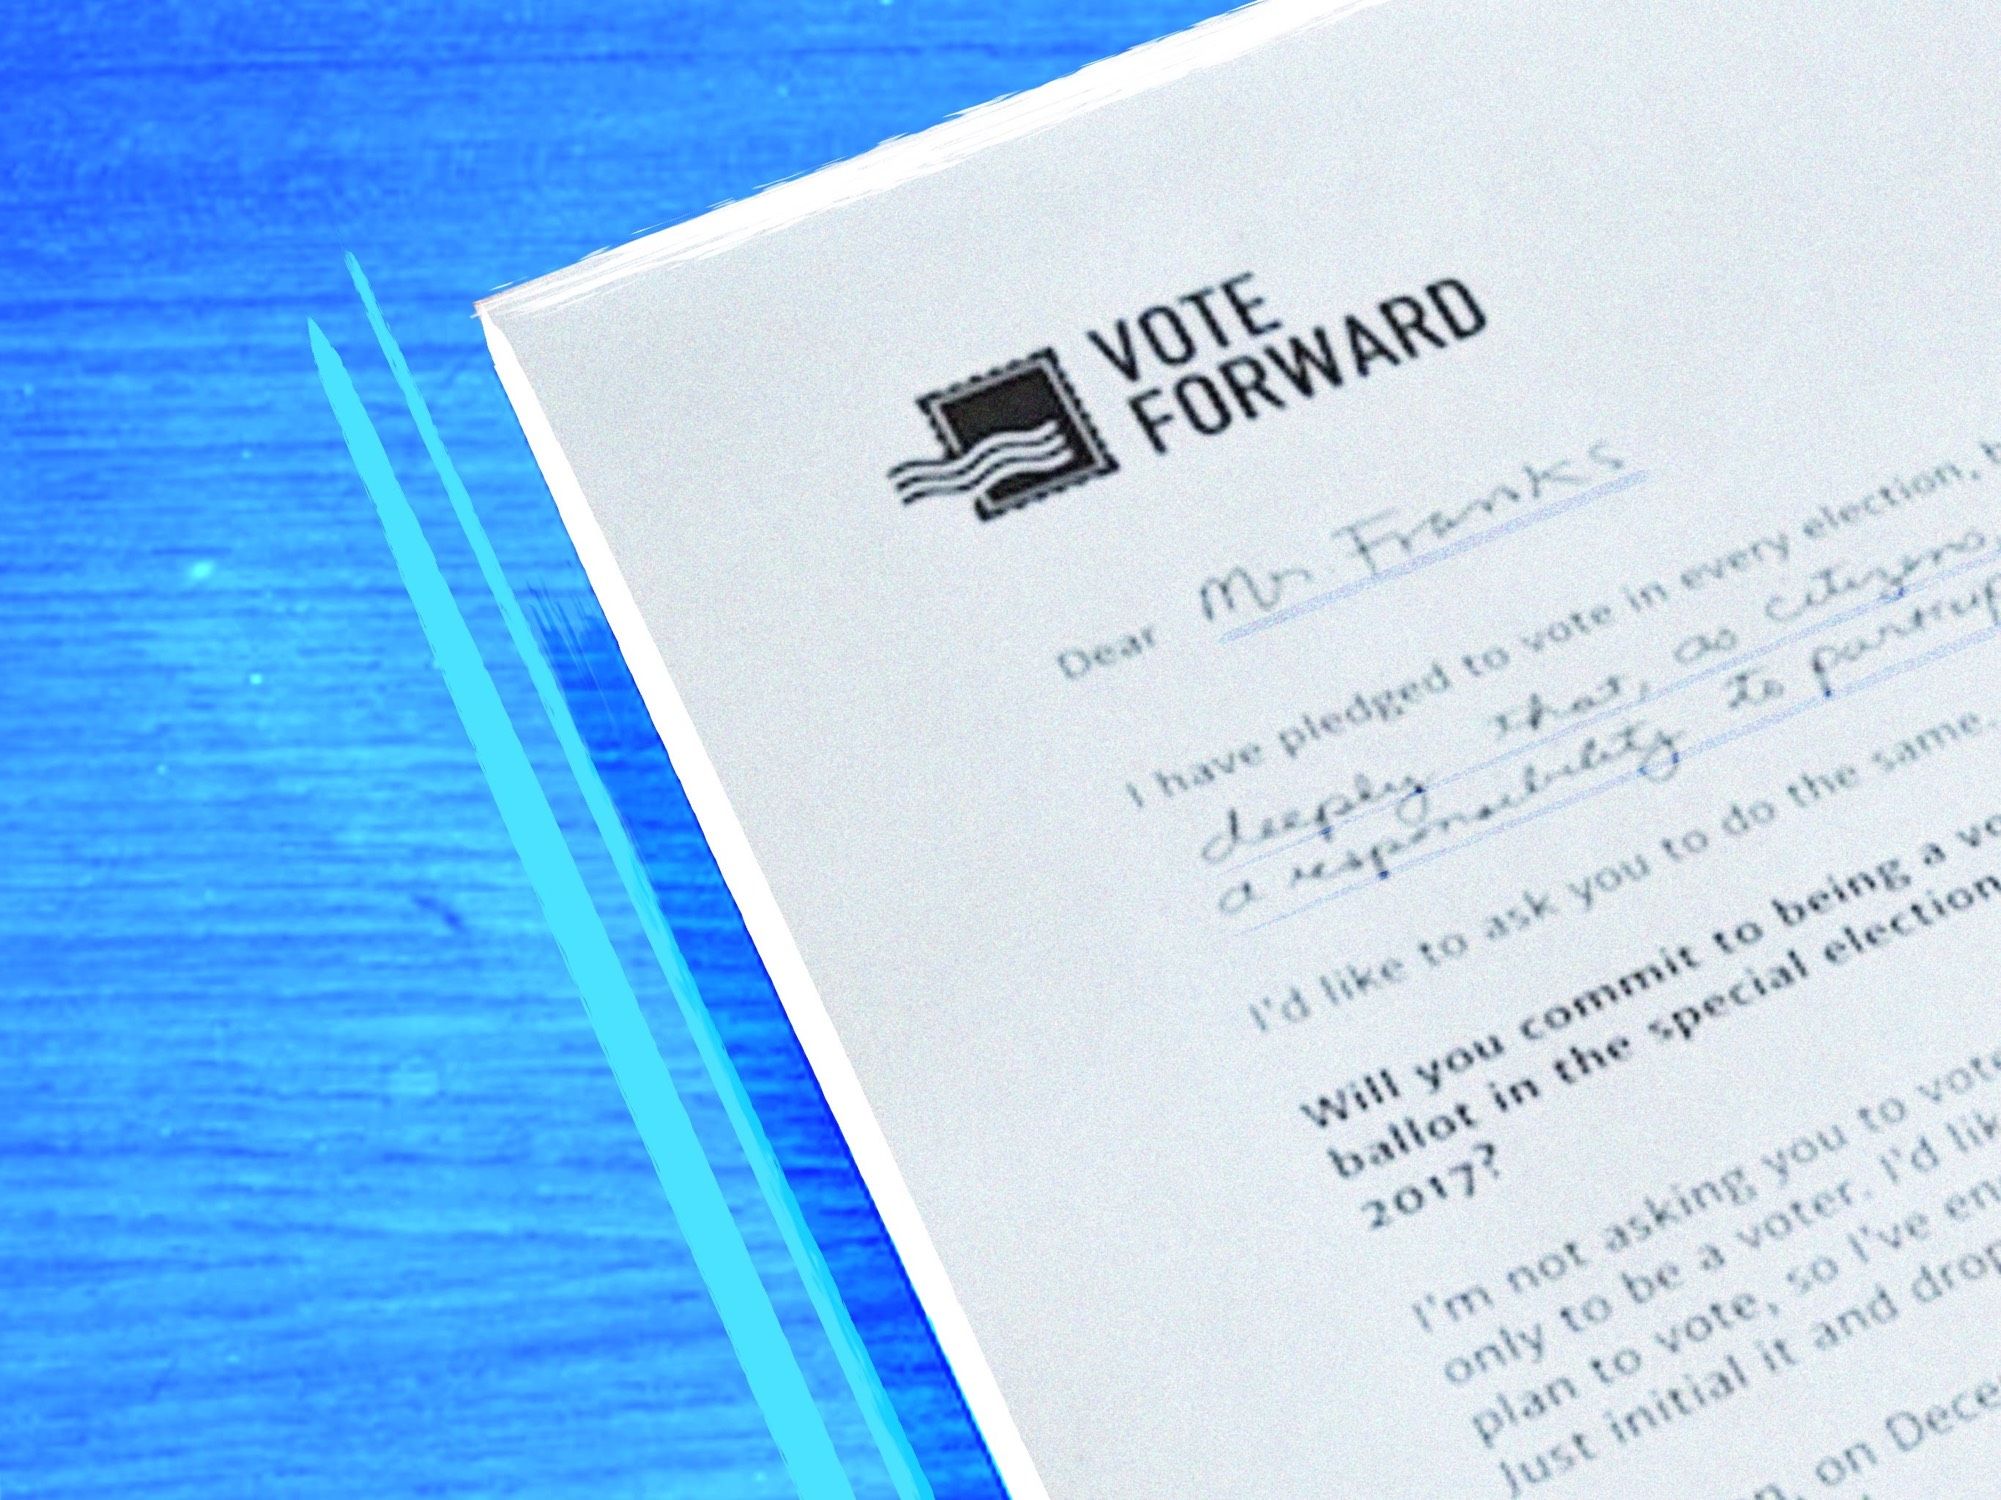 VOTE
FORWARD
Dear Mr. Franks
I have pledged to vote in every election,
deeply that, as citizens,
a responsibility to
I'd like to ask you to do the same.
Will you commit to being a
ballot in the special election
2017?
I'm not asking you to vote
only to be a voter. I'd
plan to vote, so I've
Just initial it and drop
on